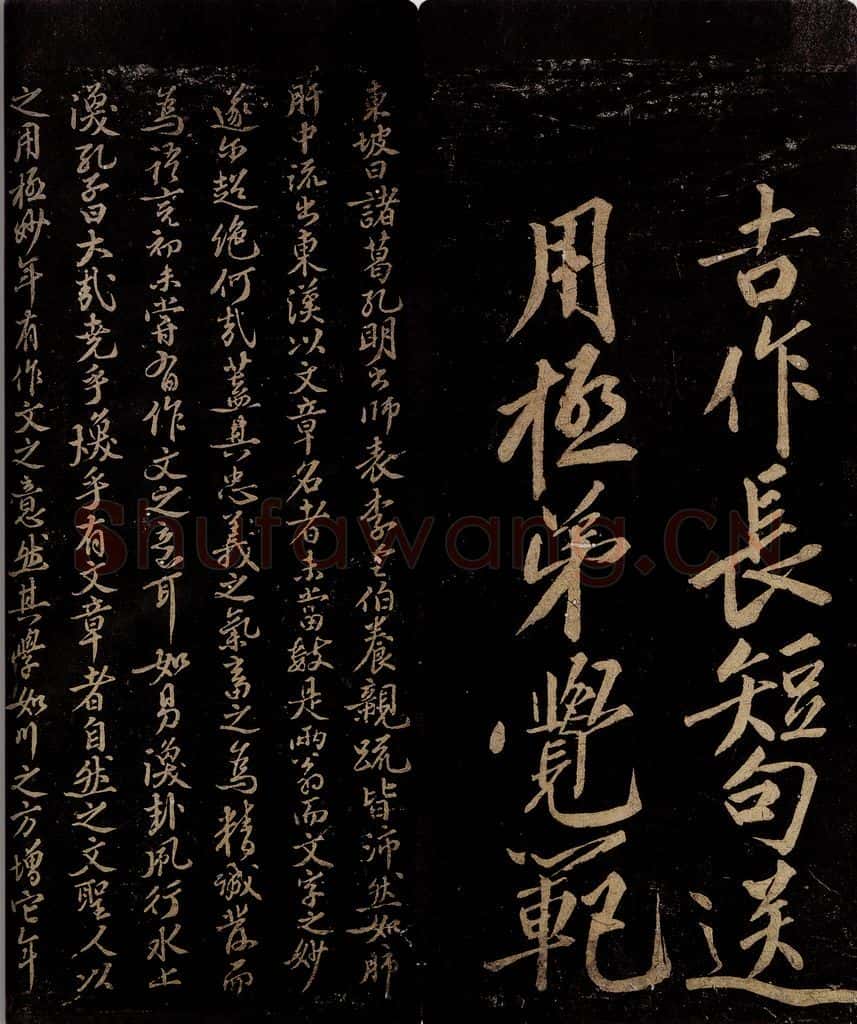 吉作長短句送
用極弟覺範
東坡曰諸葛孔明出師表李令伯養親疏皆沛然如肺
肝中流出東漢以文章名者未嘗數是兩翁而文字之妙
遂尓超絕何哉蓋其忠義之氣畜之為精誠發而
為語言初未嘗有作文之意耳如易渙卦風行水上
渙孔子曰大哉堯乎煥乎有文章者自然之文聖人以
之用極妙年有作文之意然其學如川之方增它年
Shufawang.CN